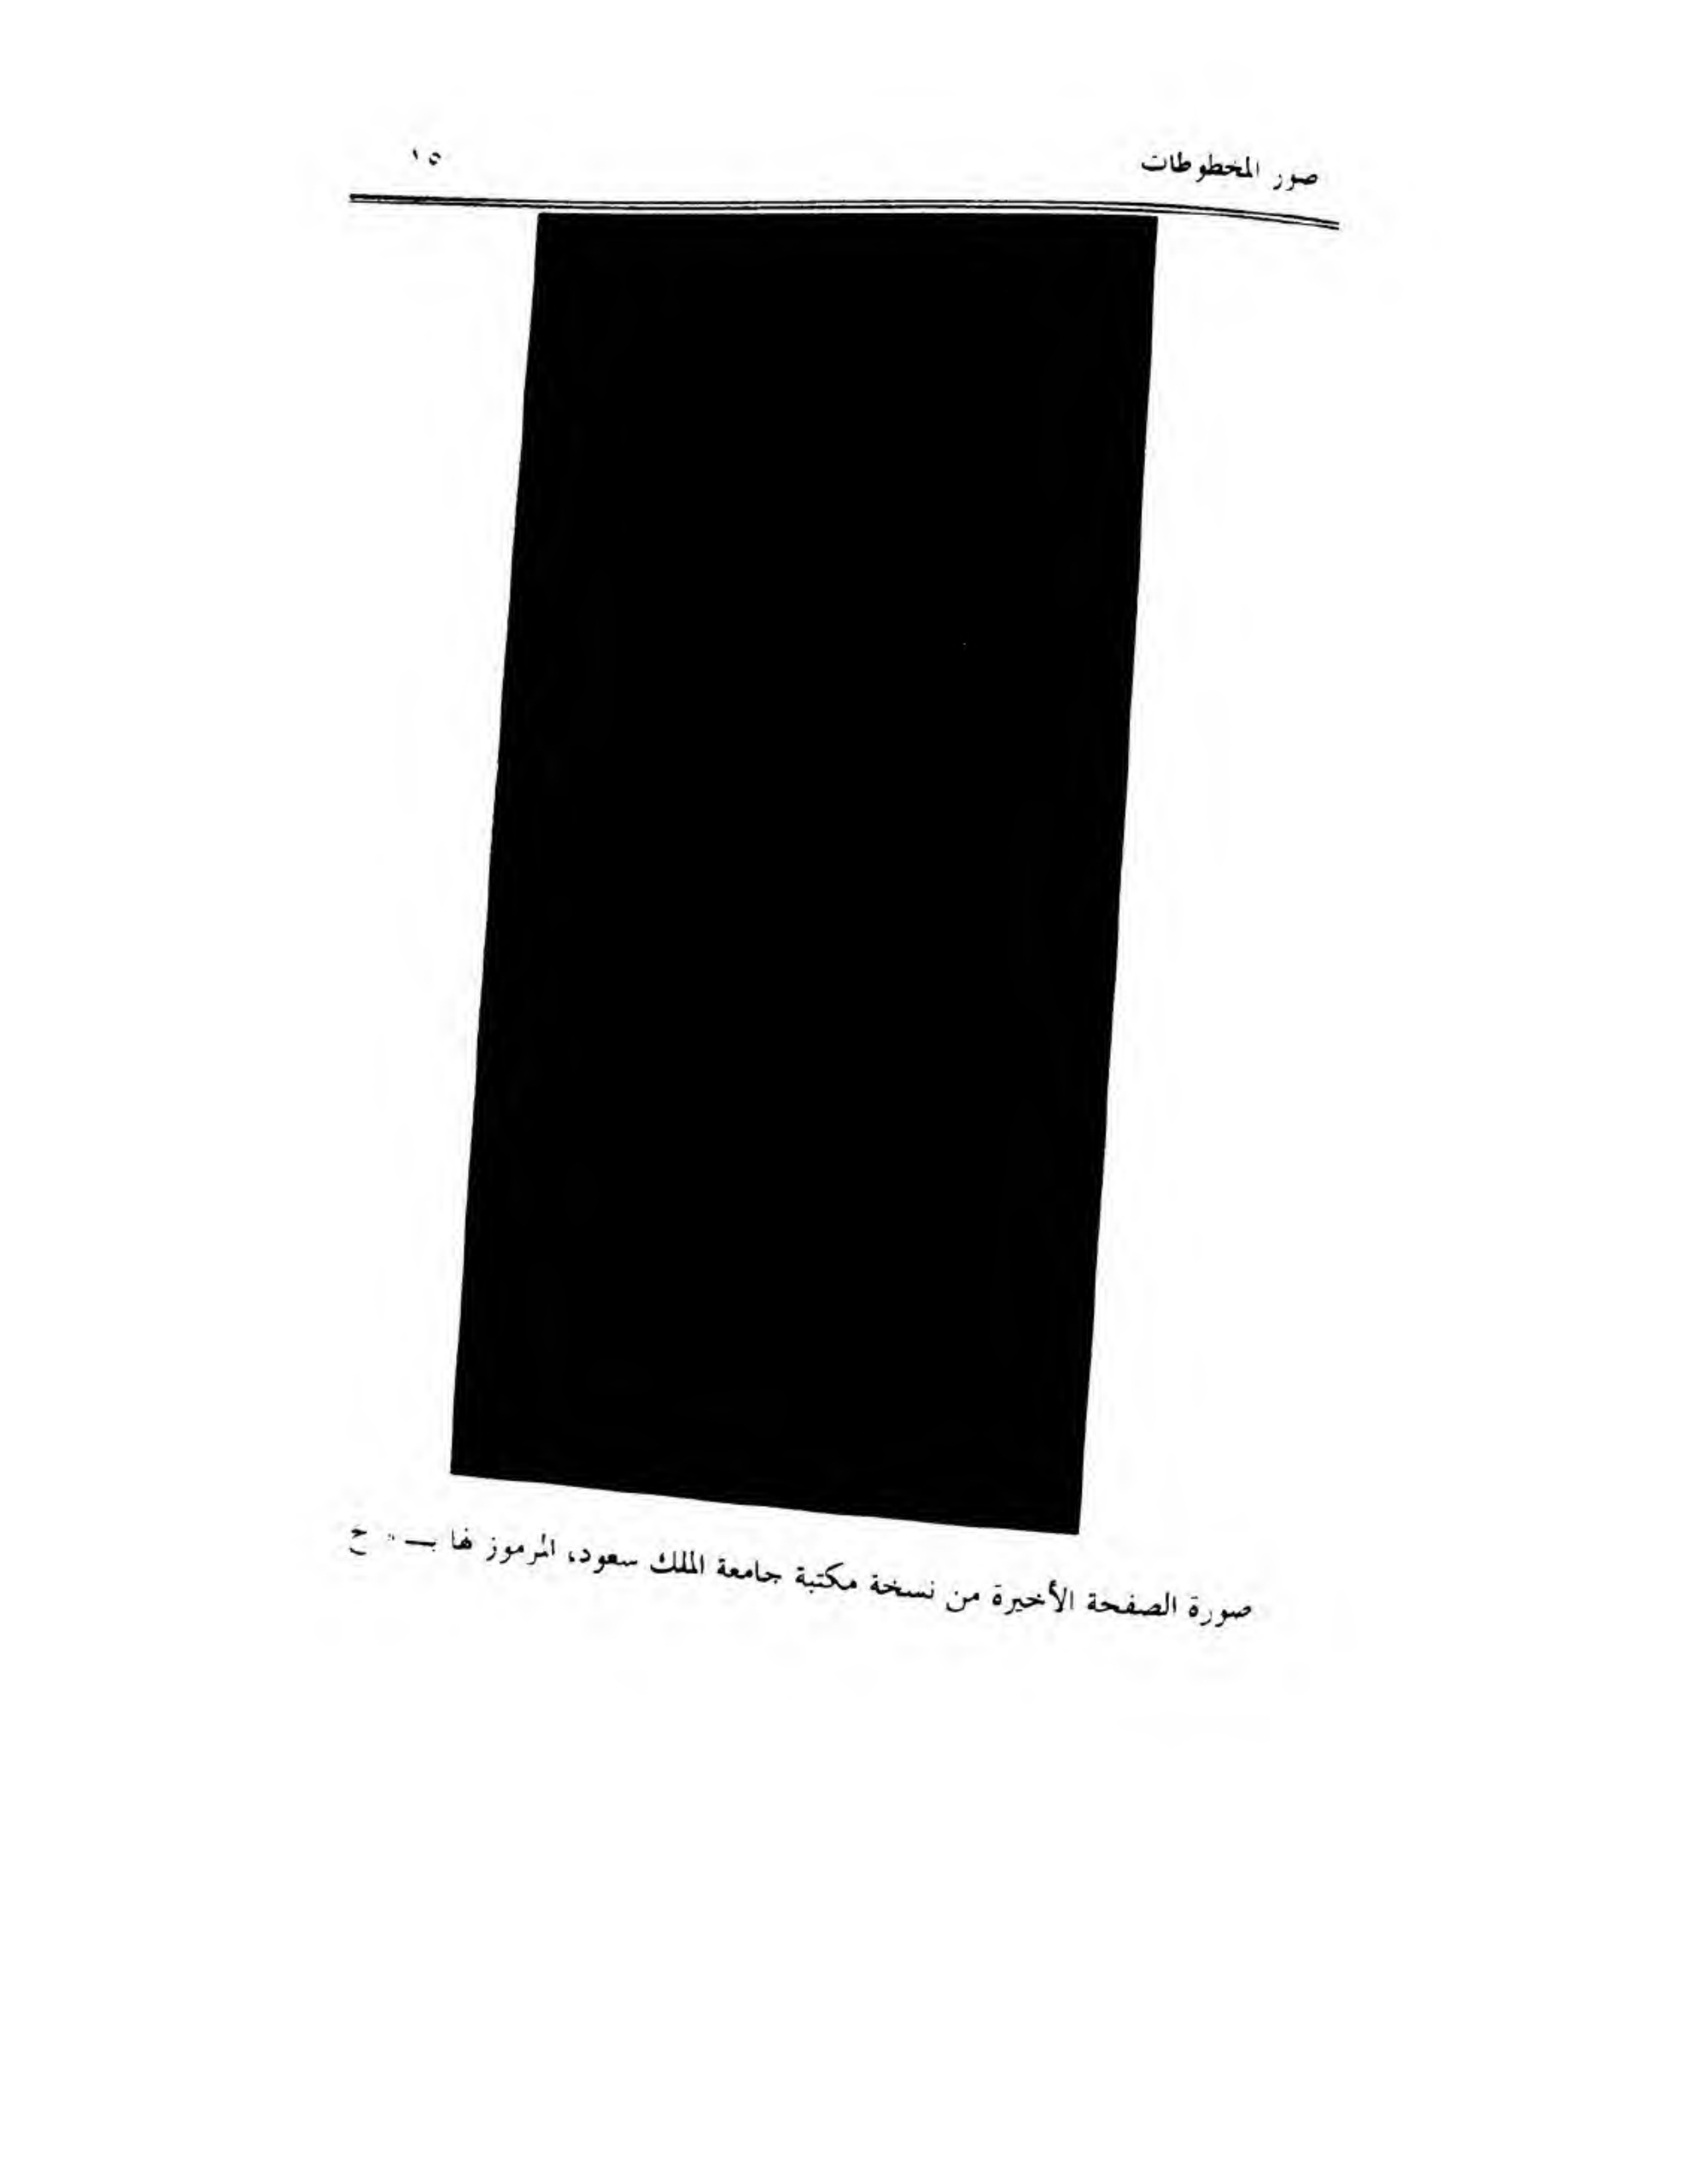 صور المخطوطات
١٥
صورة الصفحة الأخيرة من نسخة مكتبة جامعة الملك سعود، المرموز لها بـــ " ح